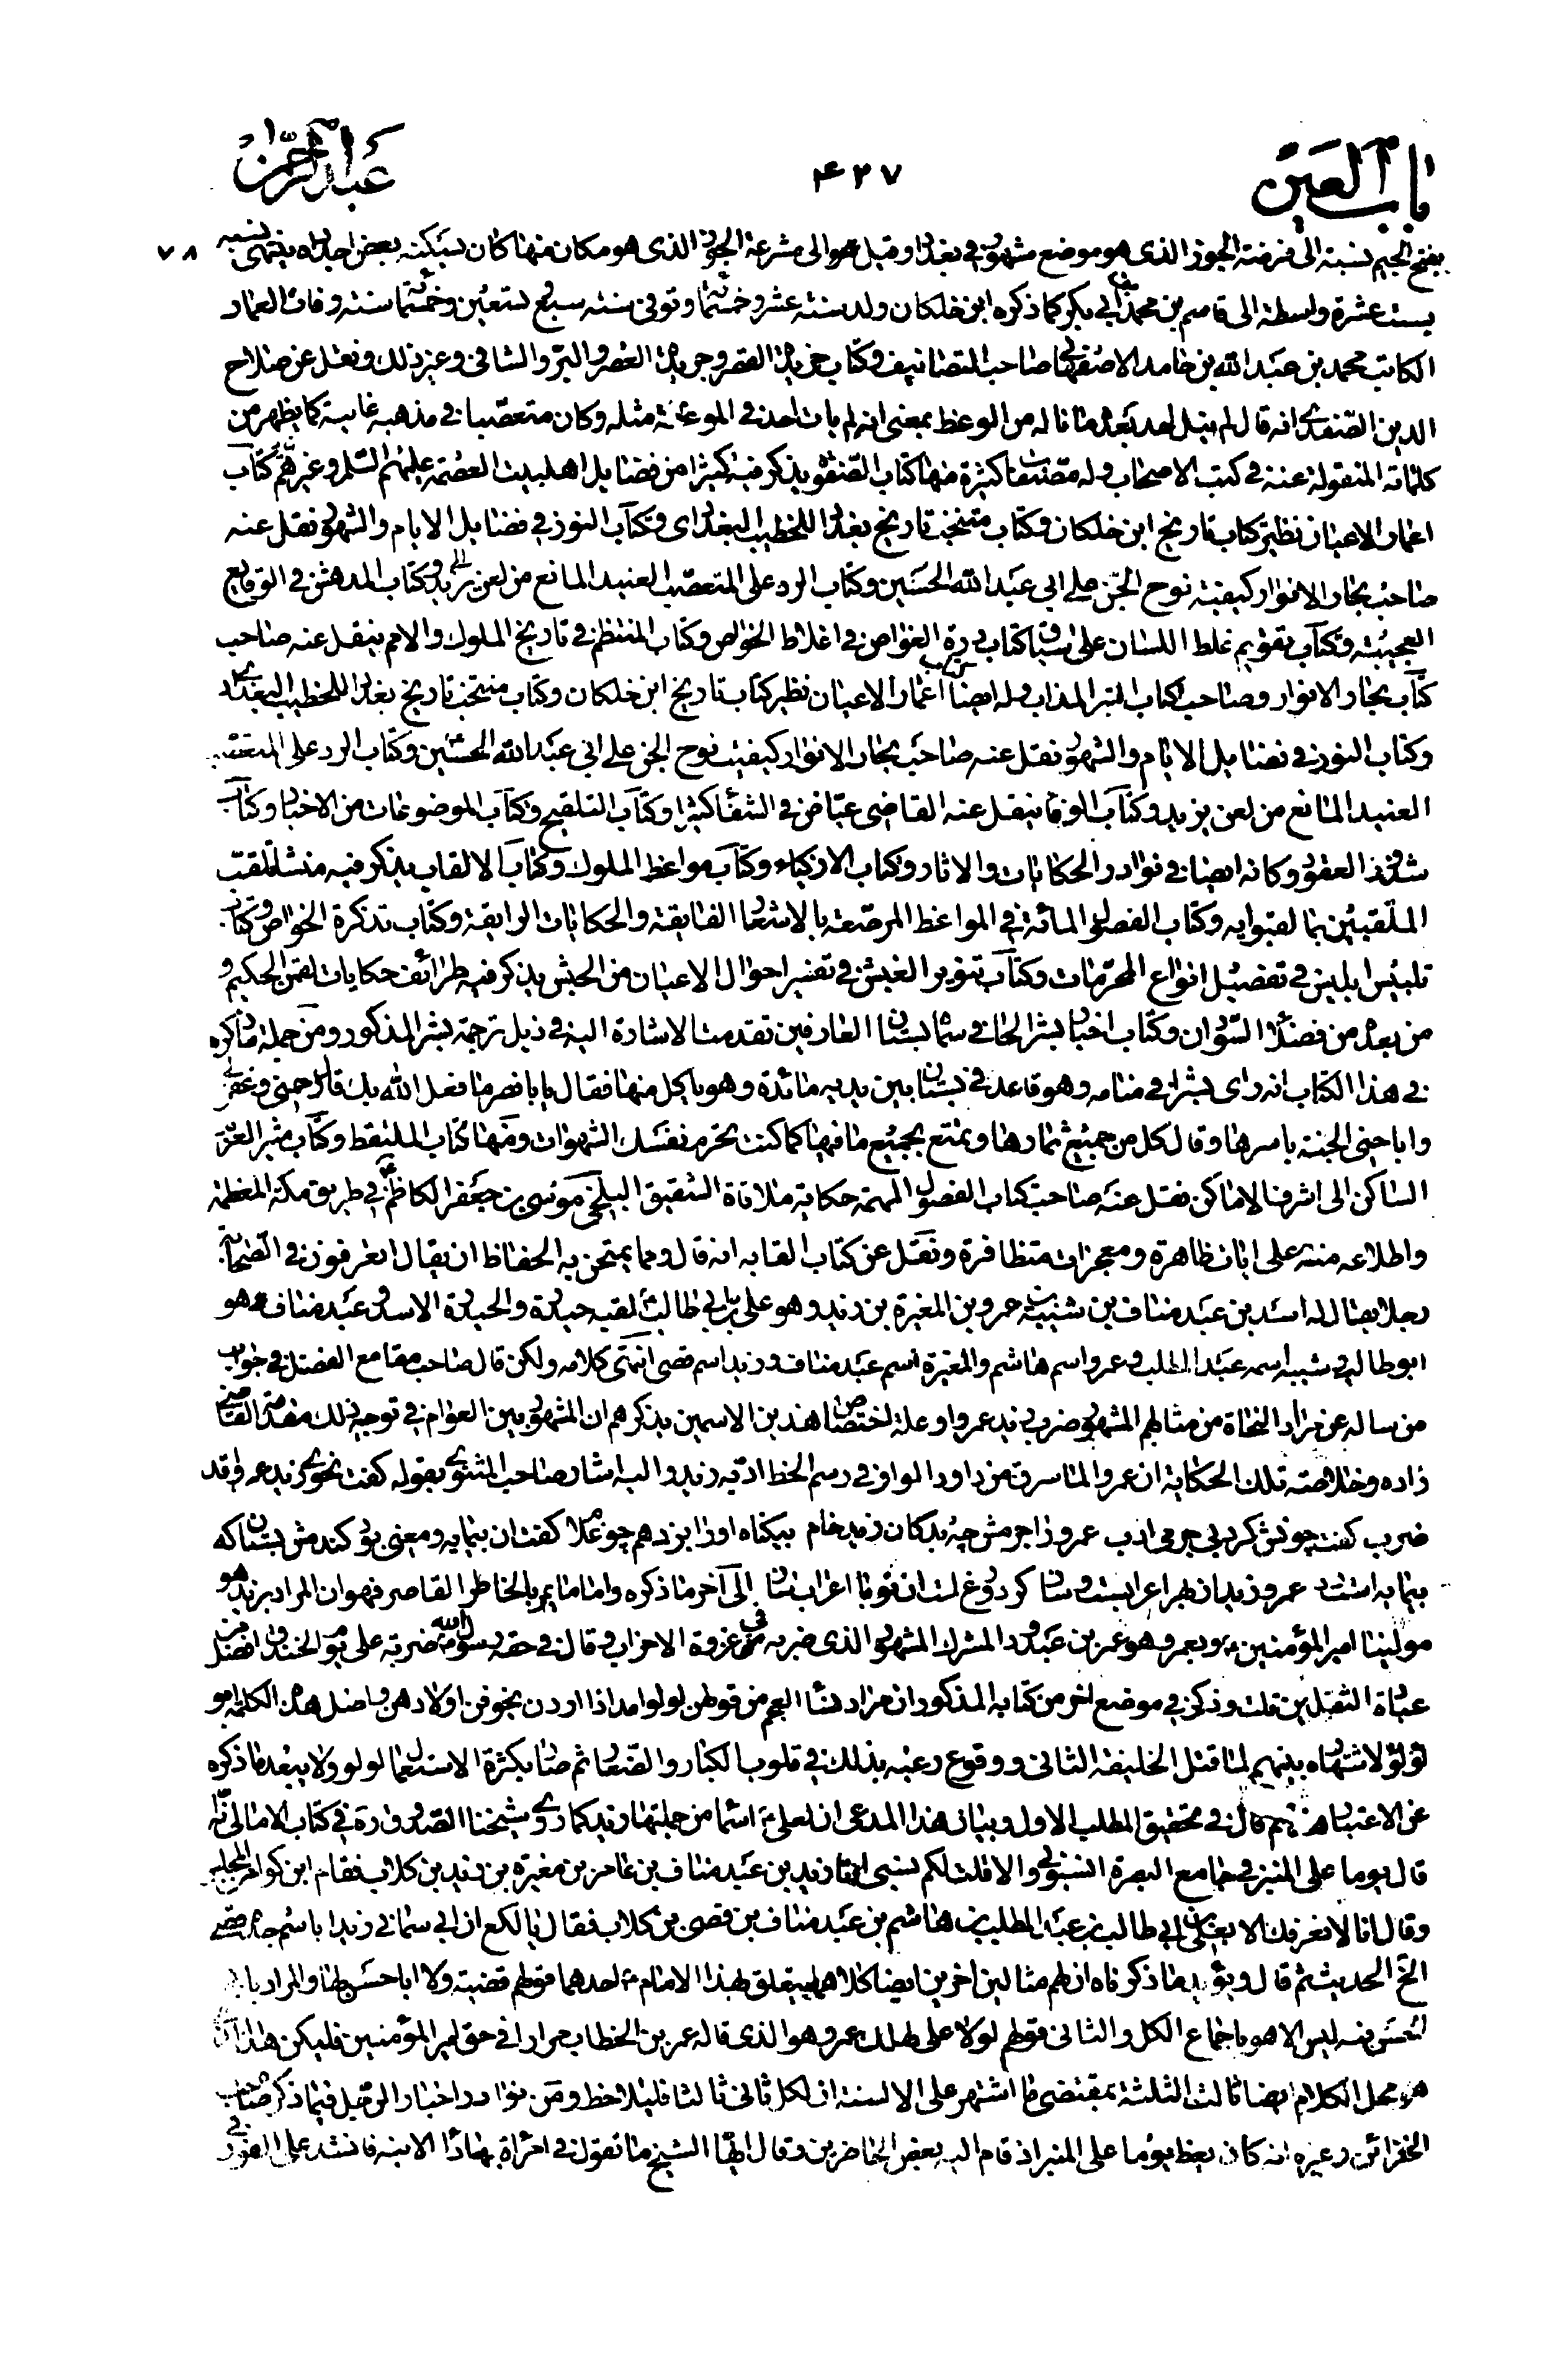 باب العين
٤٢٧
عبد الرحمن
بفتح الجيم نسبة الى فرضة الجوز الذى هو موضع مشهور فى بغداد وقيل هو الى مشرعة الجوز الذى هو مكان منها كان يسكنه بعض اجداده ينتهى نسبه
٧٨
بست عشرة واسطة الى قاسم بن محمد بن ابى بكر كما ذكره ابن خلكان ولد سنة عشر وخمسمائة وتوفى سنة سبع وتسعين وخمسمائة سنة وفات العماد
الكاتب محمد بن عبد الله بن حامد الاصفهانى صاحب التصانيف وكتاب خريدة القصر وجريدة العصر والبرق الشامى وغير ذلك ونقل عن صلاح
الدين الصفدى انه قال لم ينل احد بعده ما ناله من الوعظ بمعنى انه لم يات احد فى الموعظة مثله وكان متعصبا فى مذهبه غايته كما يظهر من
كلماته المنقولة عنه فى كتب الاصحاب وله مصنفات كثيرة منها كتاب الصفوة يذكر فيه كثيرا من فضايل اهلبيت العصمة عليهم السلم وغيرهم وكتاب
اعمار الاعيان نظير كتاب تاريخ ابن خلكان وكتاب منتخب تاريخ بغداد للخطيب البغدادى وكتاب النور فى فضايل الايام والشهور نقل عنه
صاحب بحار الانوار كيفية نوح الجن على ابى عبد الله الحسين وكتاب الرد على المتعصب العنيد المانع من لعن يزيد وكتاب المدهش فى الوقايع
العجيبة وكتاب تقويم غلط اللسان على سياق كتاب درة الغواص فى اغلاط الخواص وكتاب المنتظم فى تاريخ الملوك والامم ينقل عنه صاحب
كتاب بحار الانوار وصاحب كتاب التبر المذاب وله ايضا كتاب اعمار الاعيان نظير كتاب تاريخ ابن خلكان وكتاب منتخب تاريخ بغداد للخطيب البغدادى
وكتاب النور فى فضايل الايام والشهور نقل عنه صاحب بحار الانوار كيفيت نوح الجن على ابى عبد الله الحسين وكتاب الرد على المتعصب
العنيد المانع من لعن يزيد وكتاب الوفا ينقل عنه القاضى عياض فى الشفا كثيرا وكتاب التلقيح وكتاب الموضوعات من الاخبار وكتاب
شذور العقود وكانه ايضا فى نوادر الحكايات والاثار وكتاب الاذكياء وكتاب مواعظ الملوك وكتاب الالقاب يذكر فيه منشا تلقب
الملقبين بما لقبوا به وكتاب الفصول المائة فى المواعظ المرصعة بالاشعار الفايقة والحكايات الرايقة وكتاب تذكرة الخواص وكتاب
تلبيس ابليس فى تفصيل انواع المحرمات وكتاب تنوير الغبش فى تفسير احوال الاعيان من الحبش يذكر فيه طرائف حكايات لقمن الحكيم و
من بعده من فضلاء السودان وكتاب اخبار بشر الحافى سماه بستان العارفين تقدمت الاشارة اليه فى ذيل ترجمة بشر المذكور ومن جملة ما ذكره
فى هذا الكتاب انه راى بشرا فى منامه وهو قاعد فى بستان بين يديه مائدة وهو ياكل منها فقال يا ابا نصر ما فعل الله بك قال رحمنى وغفر لى
واباحنى الجنة باسرها وقال كل من جميع ثمارها وتمتع بجميع ما فيها كما كنت تحرم نفسك الشهوات ومنها كتاب الملتقط وكتاب مثير العزم
الساكن الى اشرف الاماكن نقل عنه صاحب كتاب الفصول المهمة حكاية ملاقاة الشقيق البلخى موسى بن جعفر الكاظم فى طريق مكة المعظمة
واطلاعه منه على ايات ظاهرة ومعجزات متظافرة ونقل عن كتاب القابه انه قال ومما يمتحن به الحفاظ ان يقال اتعرفون فى الصحابة
رجلا يقال له اسد بن عبد مناف بن شيبة بن عمرو بن المغيرة بن زيد وهو على بن ابى طالب لقبه حيدرة والحيدرة الاسد وعبد مناف هو
ابو طالب وشيبه اسمه عبد المطلب وعمرو اسم هاشم والمغيرة اسم عبد مناف وزيد اسم قصى انتهى كلامه ولكن قال صاحب مقامع الفضل فى جواب
من ساله عن مراد النحاة من مثالهم المشهور ضرب زيد عمروا وعلة اختصاص هذين الاسمين بذكرهم ان المشهور بين العوام فى توجيه ذلك مقدمة القاضى
زاده وخلاصة تلك الحكاية ان عمرو الما سرق من داود الواو فى رسم الخط ادبه زيد واليه اشار صاحب المثنوى بقوله گفت نحوى زيد عمروا قد
ضرب گفت چونش كرد بى جرمى ادب عمرو را جرمش چه بد كان زيد خام بيگناه او را بزد همچو غلام گفت ان پيمايه و معنى بود گندمش بستان كه
پيمانه است رد عمرو زيد از بهر اعرابست و ساز گر دروغ است ان تو با اعراب ساز الى آخر ما ذكره واما ما يمر بالخاطر القاصر فهو ان المراد بزيد هو
مولينا امير المؤمنين وبعمرو هو عمرو بن عبدود المشرك المشهور الذى ضربه فى غزوة الاحزاب وقال فى حقه رسول الله ضربة على يوم الخندق افضل من
عبادة الثقلين قلت وذكر فى موضع اخر من كتابه المذكور ان مراد نساء العجم من قولهن لولو امد اذا اردن تخويف اولادهن واصل هذه الكلمة ابو
لؤلؤ لاشتهاره بينهم لما قتل الخليفة الثانى ووقوع رعبه بذلك فى قلوب الكبار والصغار ثم صار بكثرة الاستعمال لولو ولا يبعد ما ذكره
عن الاعتبار ثم قال فى تحقيق المطلب الاول وبيان هذا المدعى ان لعلى اسما من جملتها زيد كما روى شيخنا الصدوق ره فى كتاب الامالى انه
قال يوما على المنبر فى جامع البصرة انسبونى والا قلت لكم نسبى انا زيد بن عبد مناف بن عامر بن مغيرة بن زيد بن كلاب فقام ابن كوا
وقال انا لا نعرفك الا بعلى بن ابى طالب بن عبد المطلب بن هاشم بن عبد مناف بن قصى بن كلاب فقال يا لكع ان ابى سمانى زيدا باسم جده قصى
الخ الحديث ثم قال ويؤيد ما ذكرناه ان لهم مثالين اخرين ايضا كلاهما يتعلق بهذا الامام احدهما قولهم قضية ولا ابا حسن لها والمراد بابى
الحسن فيه ليس الا هو باجماع الكل والثانى قولهم لولا على لهلك عمر وهو الذى قاله عمر بن الخطاب مرارا فى حق امير المؤمنين فليكن هذا
هو محل الكلام ايضا ثالث الثلثة بمقتضى ما اشتهر على الالسنة ان لكل ثانى ثالثا فليلاحظ ومن نوادر اخبار الرجل فيما ذكره صاحب
الخزائن وغيره انه كان يعظ يوما على المنبر اذ قام اليه بعض الحاضرين وقال ايها الشيخ ما تقول فى امرأة بها داء الابنه فانشد على الفور فى